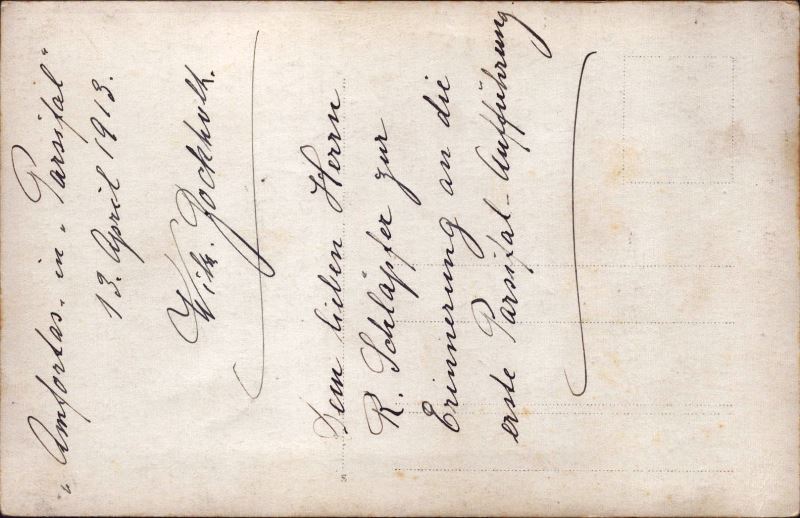 „Amfortas„ in „Parsifal“
13. April 1913.
Wilh. Bockholt.
Dem lieben Herrn
R. Schläpfer zur
Erinnerung an die
erste Parsifal-Aufführung
S